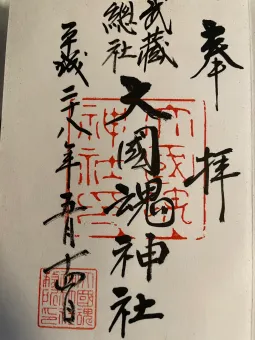 奉拝
武蔵
總社
大國魂神社
平成二十八年五月十四日